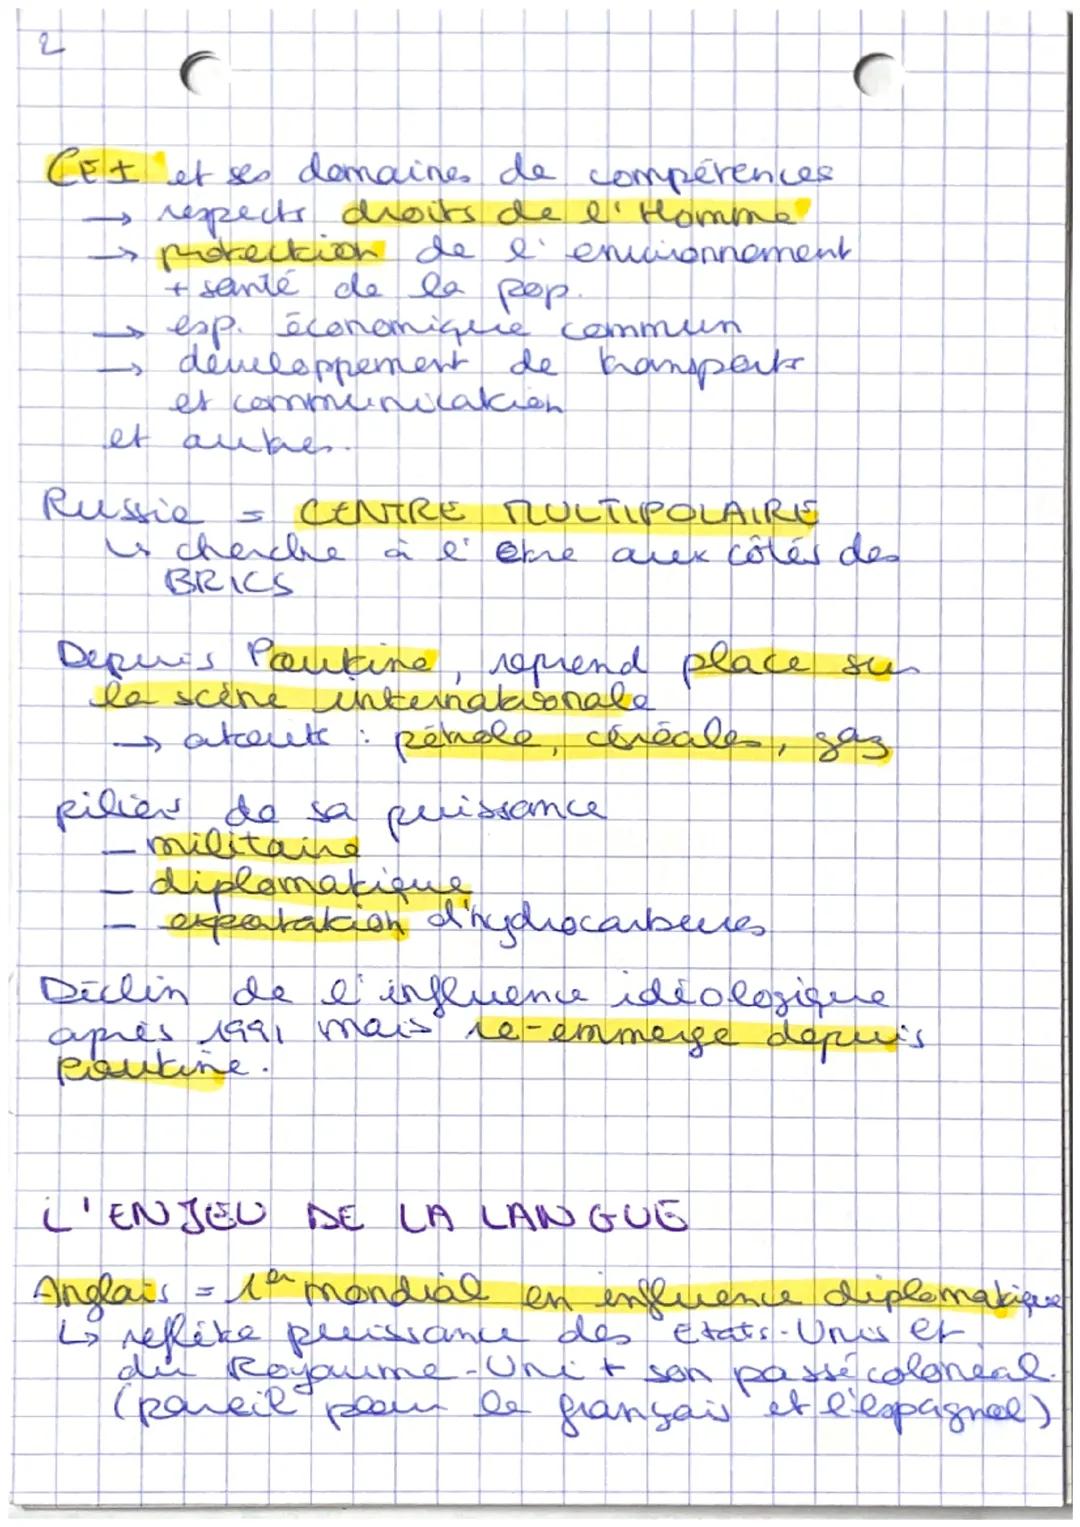 2
CEI et ses domaines de compétences
→ respects droits de l'Homme
→ protection de l'environnement
+ santé de la pop.
→ esp. économique commun
→ développement de transports
et communication
et autres.
Russie = CENTRE MULTIPOLAIRE
↳ cherche à l'être aux côtés des
BRICS
Depuis Poutine, reprend place sur
la scène internationale
→ atouts : pétrole, céréales, gaz
piliers de sa puissance
- militaire
- diplomatique
- exportation d'hydrocarbures
Déclin de l'influence idéologique
après 1991 mais ré-emmerge depuis
Poutine.
L'ENJEU DE LA LANGUE
Anglais = 1er mondial en influence diplomatique
↳ reflète puissance des Etats-Unis et
du Royaume-Uni + son passé colonial.
(pareil pour le français et l'espagnol)